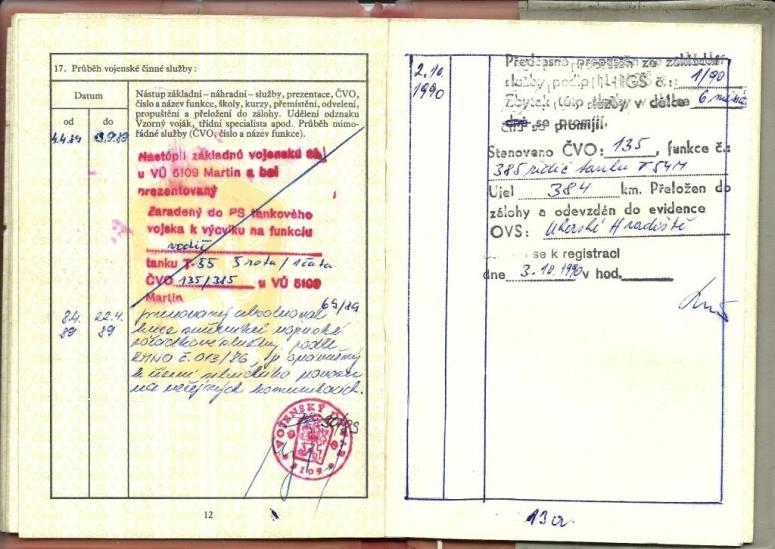 17. Průběh vojenské činné služby:
Datum
od
do
Nástup základní – náhradní – služby, prezentace, ČVO,
číslo a název funkce, školy, kurzy, přemístění, odvelení,
propuštění a přeložení do zálohy. Udělení odznaku
Vzorný voják, třídní specialista apod. Průběh mimo-
řádné služby (ČVO, číslo a název funkce).
4.4.89
Nastúpil základnú vojenskú
u VÚ 5109 Martin a bol
prezentovaný
Zaradený do PS tankového
vojska k výcviku na funkciu
vodič
tanku T-55 5 rota / 1 čata
ČVO 135/385 u VÚ 5109
Martin
69/89
8.4.
89
22.4.
89
absolvoval
poriadkovej služby, podľa
RMNO č. 013/86,
na verejných komunikáciách.
VOJENSKÝ ÚTVAR
5109
12
2.10.
1990
Předčasně propuštěn ze základní
služby podle č.: 1/90
Zbytek této služby v délce 6 měsíců
se promíjí.
Stanoveno ČVO: 135, funkce č.:
385 řidič tanku T54M
Ujel 384 km. Přeložen do
zálohy a odevzdán do evidence
OVS: Uherské Hradiště
se k registraci
dne 3.10.1990 v hod.
13a